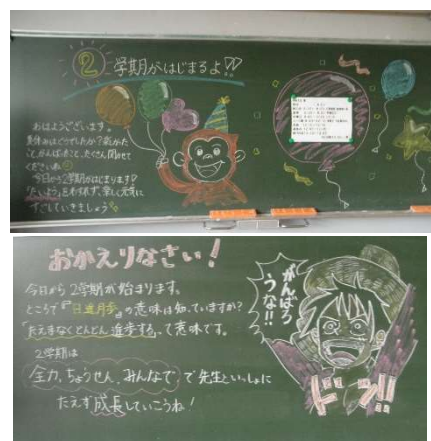 ② 学期がはじまるよ!!
おはようございます。
夏休みはどうでしたか？楽しかった
こと、がんばったこと、たくさん聞かせて
くださいね
今日から2学期がはじまります！
「たいよう」をわすれず、楽しく元気に
すごしていきましょう
おかえりなさい！
今日から2学期が始まります。
ところで『日進月歩』の意味は知っていますか？
「たえまなくどんどん進歩する」って意味です。
2学期は
全力、ちょうせん、みんなで で先生といっしょに
たえず成長していこうね！
がんばろ
うな!!
ドン!!